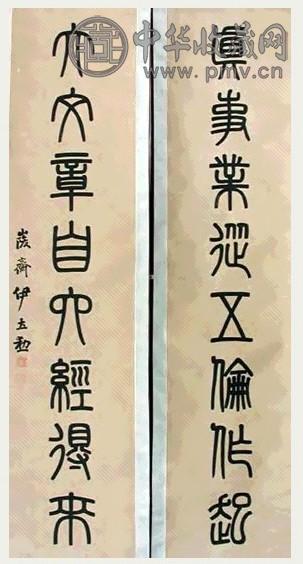 中华收藏网
www.pmv.cn
真事業從五倫作起
大文章自六經得來
峻齋伊立勳